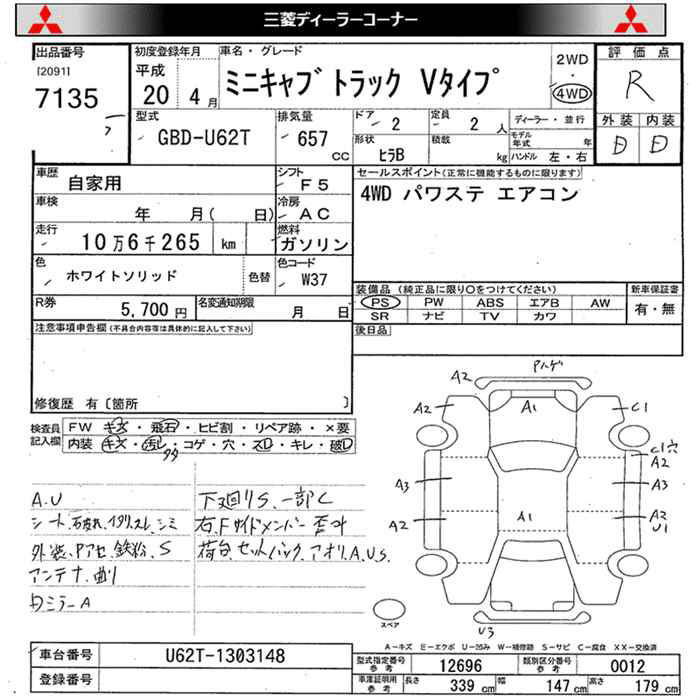 三菱ディーラーコーナー
出品番号 初度登録年月 車名・グレード 評価点
[2091] 平成 ミニキャブ トラック Vタイプ 2WD・4WD R
7135 20 4月
外装 内装
D D
型式 排気量 ドア 定員 ディーラー・並行
GBD-U62T 657 cc 2 2 人
形状 積載 モデル年式 年
ヒラB kg ハンドル 左・右
車歴 シフト セールスポイント(正常に機能するものに限ります)
自家用 F5 4WD パワステ エアコン
車検 冷房
年 月( 日) AC
走行 燃料
10万6千265 km ガソリン
色 色替 色コード
ホワイトソリッド W37
装備品(純正品に限り○をつけてください) 新車保証書
PS PW ABS エアB AW 有・無
SR ナビ TV カワ
R券 名変通知期限
5,700円 月 日
後日品
注意事項申告欄(不具合内容等は具体的に記入して下さい)
修復歴 有〔箇所 〕
検査員記入欄
FW キズ・飛石・ヒビ割・リペア跡・×要
内装 キズ・汚レ・コゲ・穴・スレ・キレ・破レ
A.U
シート、イタ
外装、Pアセ、鉄粉、S
アンテナ、曲り
ミラーA
下廻りS、一部C
右、Fサイドメンバー
荷台、セットバック、アオリ、A.U.S.
A2 Pハゲ
A2 A1 C1
C1穴
A2
A3 A3
A2 A1 A2
U1
スペア
U3
A-キズ E-エクボ U-凹み W-補修跡 S-サビ C-腐食 XX-交換済
車台番号 U62T-1303148
登録番号
型式指定番号 参考 12696 類別区分番号 参考 0012
車庫証明用 参考 長さ 339 cm 幅 147 cm 高さ 179 cm